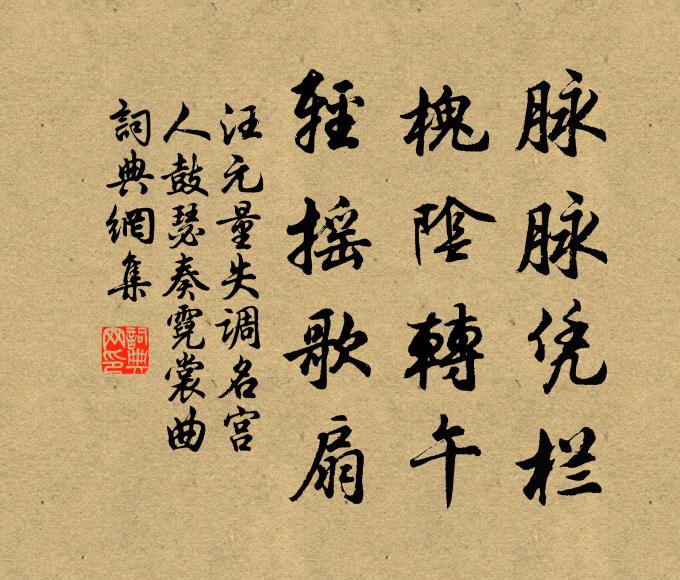 脉脉凭栏
槐陰轉午
輕摇歌扇
汪元量失调名宫
人鼓瑟奏霓裳曲
詞典網集
詞典网印